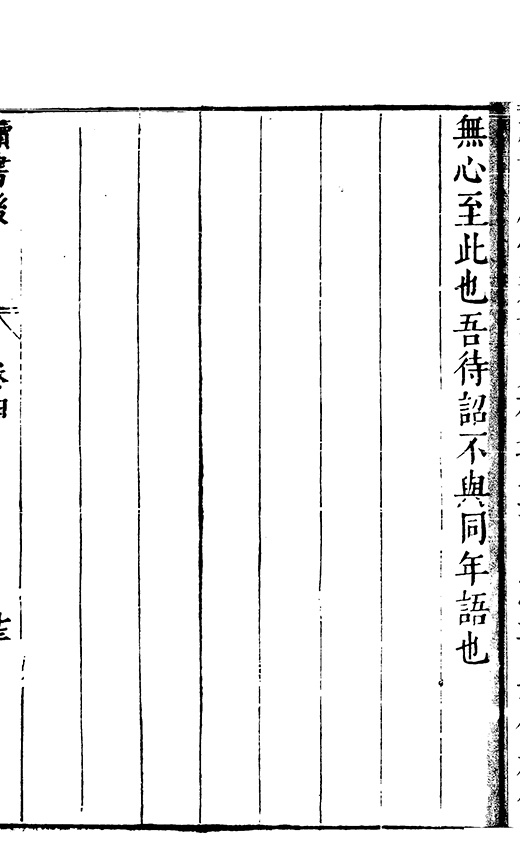 無心至此也吾待詔不與同年語也
讀書後
卷四